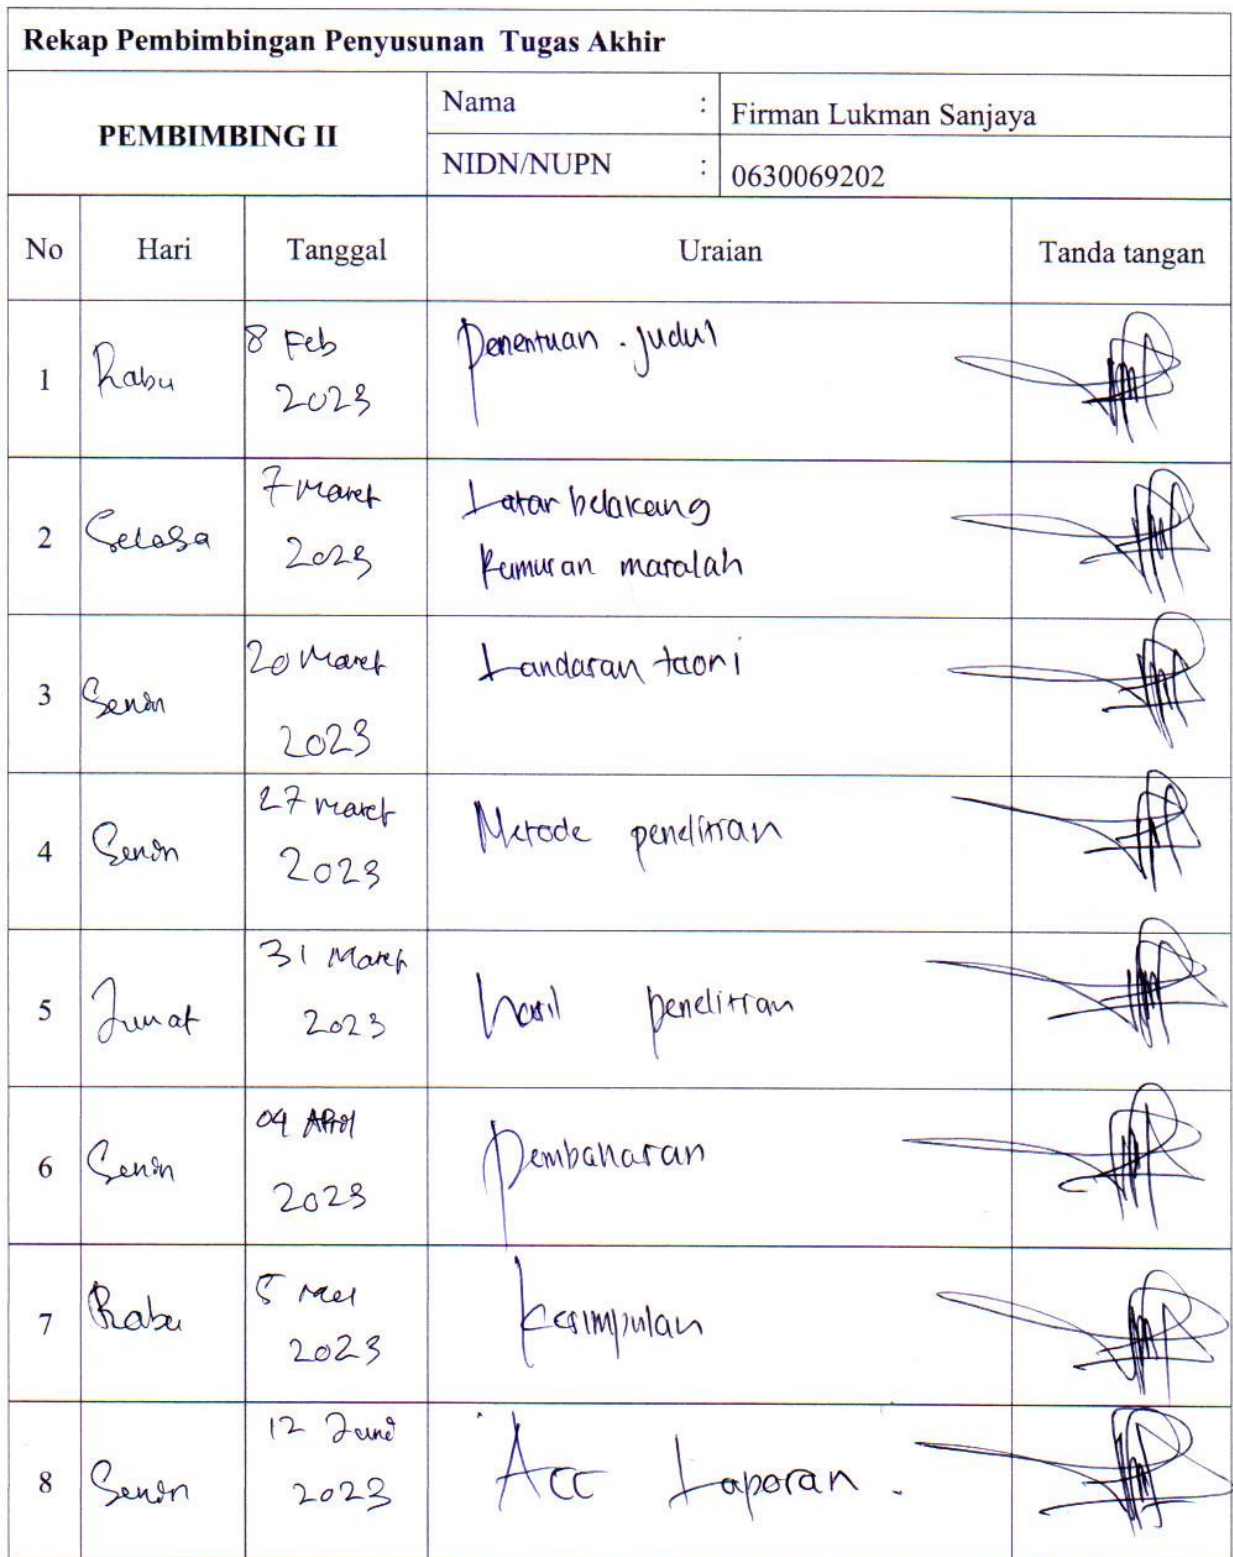 Rekap Pembimbingan Penyusunan Tugas Akhir
PEMBIMBING II
Nama : Firman Lukman Sanjaya
NIDN/NUPN : 0630069202
No Hari Tanggal Uraian Tanda tangan
1 Rabu 8 Feb 2023 Penentuan judul
2 Selasa 7 Maret 2023 Latar belakang
Rumusan masalah
3 Senin 20 Maret 2023 Landasan teori
4 Senin 27 Maret 2023 Metode penelitian
5 Jumat 31 Maret 2023 Hasil penelitian
6 Senin 04 April 2023 Pembahasan
7 Rabu 5 Mei 2023 Kesimpulan
8 Senin 12 Juni 2023 Acc Laporan.